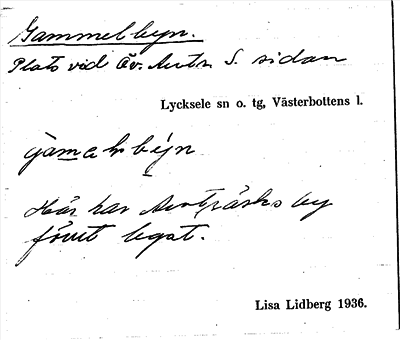 Gammelbyn.
Plats vid Öv. Avatr. S. sidan
Lycksele sn o. tg, Västerbottens l.
gamelsbýn
Här har Avaträsks by
förut legat.
Lisa Lidberg 1936.